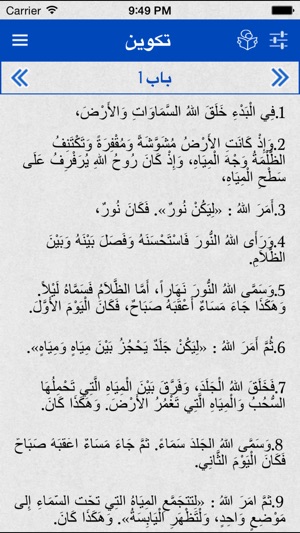 Carrier 9:49 PM
تكوين
باب 1
1.فِي الْبَدْءِ خَلَقَ اللهُ السَّمَاوَاتِ وَالأَرْضَ،
2.وَإِذْ كَانَتِ الأَرْضُ مُشَوَّشَةً وَمُقْفِرَةً وَتَكْتَنِفُ
الظُّلْمَةُ وَجْهَ الْمِيَاهِ، وَإِذْ كَانَ رُوحُ اللهِ يُرَفْرِفُ عَلَى
سَطْحِ الْمِيَاهِ،
3.أَمَرَ اللهُ : «لِيَكُنْ نُورٌ». فَكَانَ نُورٌ،
4.وَرَأَى اللهُ النُّورَ فَاسْتَحْسَنَهُ وَفَصَلَ بَيْنَهُ وَبَيْنَ
الظَّلاَمِ.
5.وَسَمَّى اللهُ النُّورَ نَهَاراً، أَمَّا الظَّلاَمُ فَسَمَّاهُ لَيْلاً.
وَهَكَذَا جَاءَ مَسَاءٌ أَعْقَبَهُ صَبَاحٌ، فَكَانَ الْيَوْمَ الأَوَّلَ.
6.ثُمَّ أَمَرَ اللهُ : «لِيَكُنْ جَلَدٌ يَحْجُزُ بَيْنَ مِيَاهٍ وَمِيَاهٍ».
7.فَخَلَقَ اللهُ الْجَلَدَ، وَفَرَّقَ بَيْنَ الْمِيَاهِ الَّتِي تَحْمِلُهَا
السُّحُبُ وَالْمِيَاهِ الَّتِي تَغْمُرُ الأَرْضَ. وَهَكَذَا كَانَ.
8.وَسَمَّى اللهُ الْجَلَدَ سَمَاءً. ثُمَّ جَاءَ مَسَاءٌ اعقبَهُ صَبَاحٌ
فَكَانَ الْيَوْمَ الثَّانِي.
9.ثُمَّ امَرَ اللهُ : «لِتَتَجَمَّعِ الْمِيَاهُ الَّتِي تَحْتَ السَّمَاءِ إِلَى
مَوْضِعٍ وَاحِدٍ، وَلْتَظْهَرِ الْيَابِسَةُ». وَهَكَذَا كَانَ.